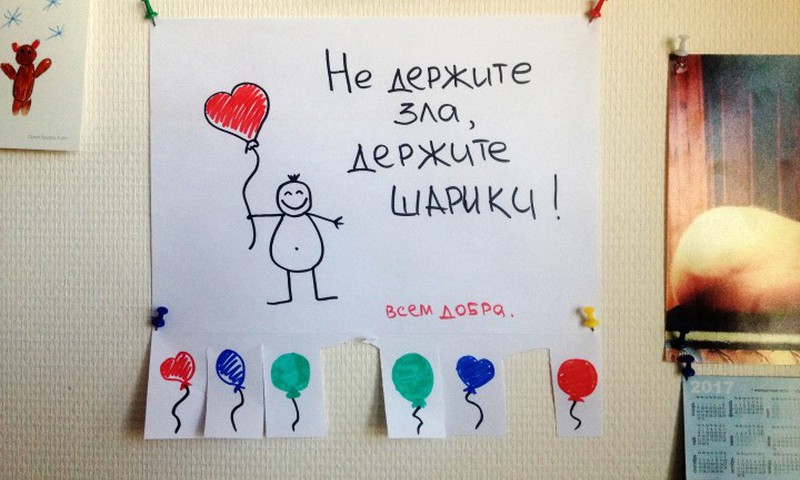 Не держите
зла,
держите
шарики!
всем добра.
2017